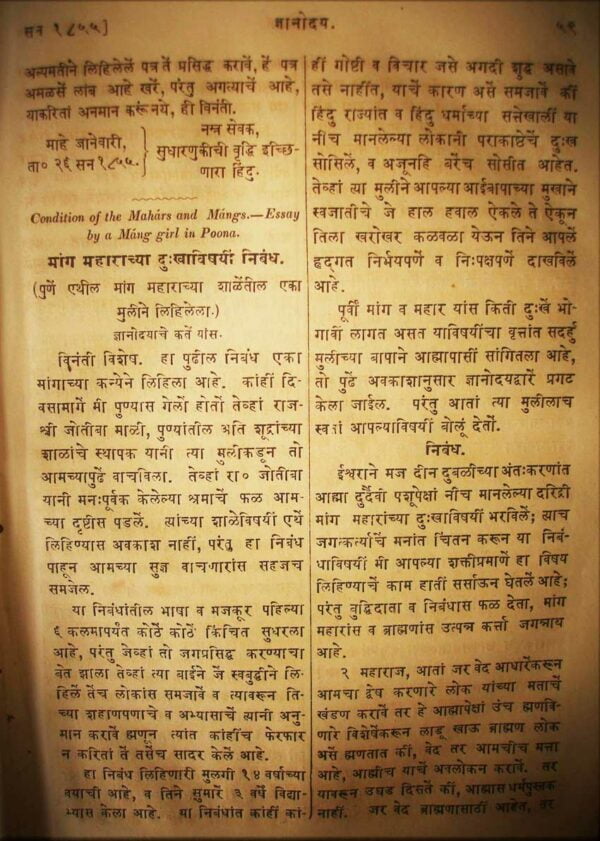 सन १८५५]
ज्ञानोदय.
५९
अन्यमतीने लिहिलेलें पत्र तें प्रसिद्ध करावें, हें पत्र
अमळसें लांब आहे खरें, परंतु अगत्याचें आहे,
याकरितां अनमान करूं नये, ही विनंती.
माहे जानेवारी,
ता० २६ सन १८५५.
नम्र सेवक,
सुधारणुकीची वृद्धि इच्छि-
णारा हिंदु.
Condition of the Mahárs and Mángs.—Essay
by a Máng girl in Poona.
मांग महाराच्या दुःखाविषयीं निबंध.
(पुणें एथील मांग महाराच्या शाळेंतील एका
मुलीने लिहिलेला.)
ज्ञानोदयाचे कर्ते यांस.
विनंती विशेष. हा पुढील निबंध एका
मांगाच्या कन्येने लिहिला आहे. कांहीं दि-
वसामागें मी पुण्यास गेलों होतों तेव्हां राज-
श्री जोतीबा माळी, पुण्यांतील अति शूद्रांच्या
शाळांचे स्थापक यानीं त्या मुलीकडून तो
आमच्यापुढें वाचविला. तेव्हां रा० जोतीबा
यानी मनःपूर्वक केलेल्या श्रमाचें फळ आम-
च्या दृष्टीस पडलें. त्यांच्या शाळेविषयीं एथें
लिहिण्यास अवकाश नाहीं, परंतु हा निबंध
पाहून आमच्या सुज्ञ वाचणारांस सहजच
समजेल.
या निबंधांतील भाषा व मजकूर पहिल्या
६ कलमापर्यंत कोठें कोठें किंचित सुधरला
आहे, परंतु जेव्हां तो जगप्रसिद्ध करण्याचा
बेत झाला तेव्हां त्या बाईने जें स्वबुद्धीने लि-
हिलें तेंच लोकांस समजावें व त्यावरून ति-
च्या शहाणपणाचे व अभ्यासाचें त्यानी अनु-
मान करावें ह्मणून त्यांत कांहींच फेरफार
न करितां तें तसेंच सादर केलें आहे.
हा निबंध लिहिणारी मुलगी १४ वर्षाच्या
वयाची आहे, व तिने सुमारें ३ वर्षें विद्या-
भ्यास केला आहे. या निबंधांत कांहीं कां-
हीं गोष्टी व विचार जसे अगदी शुद्ध असावे
तसे नाहींत, याचें कारण असें समजावें कीं
हिंदु राज्यांत व हिंदु धर्माच्या सत्तेखालीं या
नीच मानलेल्या लोकानी पराकाष्टेचें दुःख
सोसिलें, व अजूनहि बरेंच सोसीत आहेत.
तेव्हां त्या मुलीने आपल्या आईबापाच्या मुखाने
स्वजातीचे जे हाल हवाल ऐकले ते ऐकून
तिला खरोखर कळवळा येऊन तिने आपलें
हृदगत निर्भयपणें व निःपक्षपणें दाखविलें
आहे.
पूर्वीं मांग व महार यांस किती दुःखें भो-
गावीं लागत असत याविषयींचा वृत्तांत सदर्हु
मुलीच्या बापाने आह्मापासीं सांगितला आहे,
तो पुढें अवकाशानुसार ज्ञानोदयद्वारें प्रगट
केला जाईल. परंतु आतां त्या मुलीलाच
स्वतां आपल्याविषयीं बोलूं देतों.
निबंध.
ईश्वराने मज दीन दुबळीच्या अंतःकरणांत
आह्मा दुर्दैवी पशूपेक्षां नीच मानलेल्या दरिद्री
मांग महारांच्या दुःखाविषयीं भरविलें; त्याच
जगत्कर्त्याचें मनांत चिंतन करून या निबं-
धाविषयीं मी आपल्या शक्तीप्रमाणें हा विषय
लिहिण्याचें काम हातीं सर्साऊन घेतलें आहे;
परंतु बुद्धिदाता व निबंधास फळ देता, मांग
महारांस व ब्राह्मणांस उत्पन्न कर्त्ता जगन्नाथ
आहे.
२ महाराज, आतां जर वेद आधारेंकरून
आमचा द्वेष करणारे लोक यांच्या मताचें
खंडण करावें तर हे आह्मापेक्षां उंच ह्मणवि-
णारे विशेषेंकरून लाडू खाऊ ब्राह्मण लोक
असें ह्मणतात कीं, वेद तर आमचीच मत्ता
आहे, आह्मीच याचें अवलोकन करावें. तर
यावरून उघड दिसतें कीं, आह्मास धर्मपुस्तक
नाहीं. जर वेद ब्राह्मणासाठीं आहेत, तर